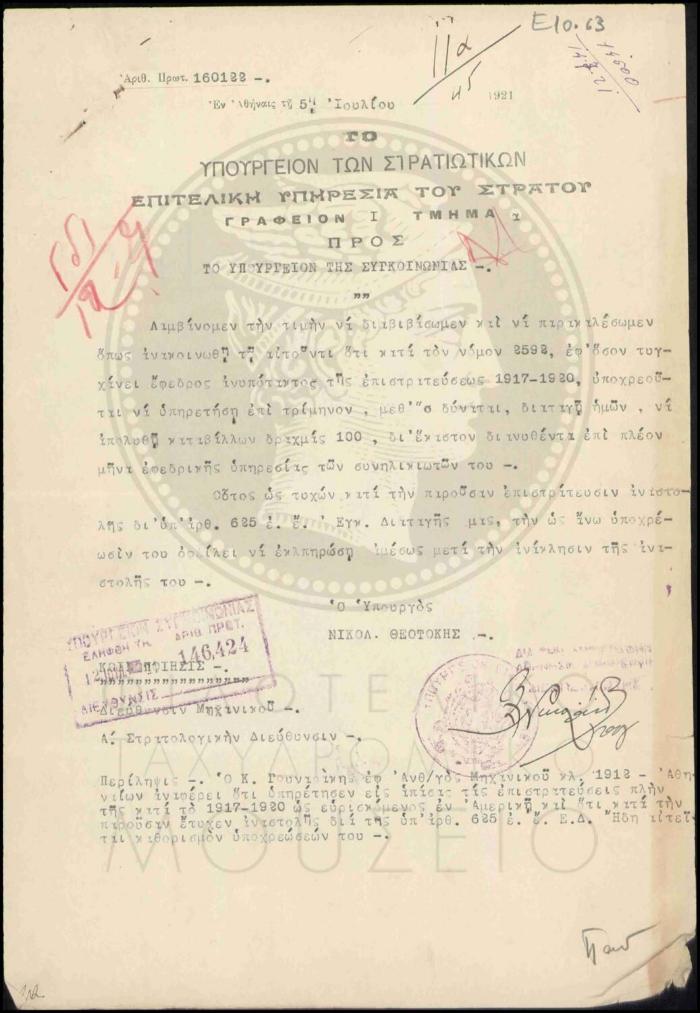 Ε10.63
11α
45
Ἀριθ. Πρωτ. 160122 -.
Ἐν Ἀθήναις τῇ 5ῃ Ἰουλίου 1921
ΤΟ
ΥΠΟΥΡΓΕΙΟΝ ΤΩΝ ΣΤΡΑΤΙΩΤΙΚΩΝ
ΕΠΙΤΕΛΙΚΗ ΥΠΗΡΕΣΙΑ ΤΟΥ ΣΤΡΑΤΟΥ
ΓΡΑΦΕΙΟΝ Ι ΤΜΗΜΑ 1
ΠΡΟΣ
ΤΟ ΥΠΟΥΡΓΕΙΟΝ ΤΗΣ ΣΥΓΚΟΙΝΩΝΙΑΣ -.
""
Λαμβάνομεν τὴν τιμὴν νά διαβιβάσωμεν καί νά παρακαλέσωμεν
ὅπως ἀνακοινωθῇ τῷ αἰτοῦντι ὅτι κατά τὸν νόμον 2592, ἐφ'ὅσον τυγ-
χάνει ἔφεδρος ἀνυπότακτος τῆς ἐπιστρατεύσεως 1917-1920, ὑποχρεοῦ-
ται νά ὑπηρετήσῃ ἐπί τρίμηνον, μεθ'ὅ δύναται, διαταγῇ ἡμῶν, νά
ἀπολυθῇ καταβάλλων δραχμάς 100, δι'ἕκαστον διανυθέντα ἐπί πλέον
μῆνα ἐφεδρικῆς ὑπηρεσίας τῶν συνηλικιωτῶν του -.
Οὗτος ὡς τυχών κατά τὴν παροῦσαν ἐπιστράτευσιν ἀναστο-
λῆς δι'ὑπ'ἀρθ. 625 ἐ. ἔ. Ἐγκ. Διαταγῆς μας, τὴν ὡς ἄνω ὑποχρέ-
ωσίν του ὀφείλει νά ἐκπληρώσῃ ἀμέσως μετά τὴν ἀνάκλησιν τῆς ἀνα-
στολῆς του -.
Ὁ Ὑπουργὸς
ΝΙΚΟΛ. ΘΕΟΤΟΚΗΣ -.
ΥΠΟΥΡΓΕΙΟΝ ΣΥΓΚΟΙΝΩΝΙΑΣ
ΕΛΗΦΘΗ ΤΗ ΑΡΙΘ ΠΡΩΤ.
12 146,424
ΔΙΕΥΘΥΝΣΙΣ
ΚΟΙΝΟΠΟΙΗΣΙΣ -.
Διεύθυνσιν Μηχανικοῦ -.
Α. Στρατολογικὴν Διεύθυνσιν -.
Περίληψις -. Ὁ Κ. Γουναράκης ἐφ Ἀνθ/γὸς Μηχανικοῦ κλ. 1912 - Ἀθη-
ναίων ἀναφέρει ὅτι ὑπηρέτησεν εἰς ἁπάσας τάς ἐπιστρατεύσεις πλὴν
τῆς κατά τὸ 1917-1920 ὡς εὑρισκόμενος ἐν Ἀμερικῇ καί ὅτι κατά τὴν
παροῦσαν ἔτυχεν ἀναστολῆς διά τῆς ὑπ'ἀρθ. 625 ἐ. ἔ. Ε.Δ. Ἤδη αἰτεῖ-
ται καθορισμὸν ὑποχρεώσεών του -.
ΦΙΛΟΤΕΛΙΚΟ
ΤΑΧΥΔΡΟΜΙΚΟ
ΜΟΥΣΕΙΟ